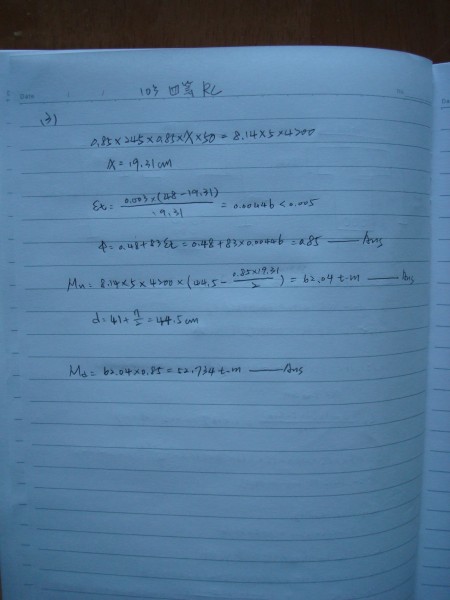 103 四等 RC
Date / /
(3)
0.85×245×0.85×X×50=8.14×5×4200
X=19.31cm
εt=0.003×(48-19.31)/19.31=0.00446<0.005
φ=0.48+83εt=0.48+83×0.00446=0.85 — Ans
Mn=8.14×5×4200×(44.5-0.85×19.31/2)=62.04 t-m — Ans
d=41+7/2=44.5cm
Md=62.04×0.85=52.734 t-m — Ans